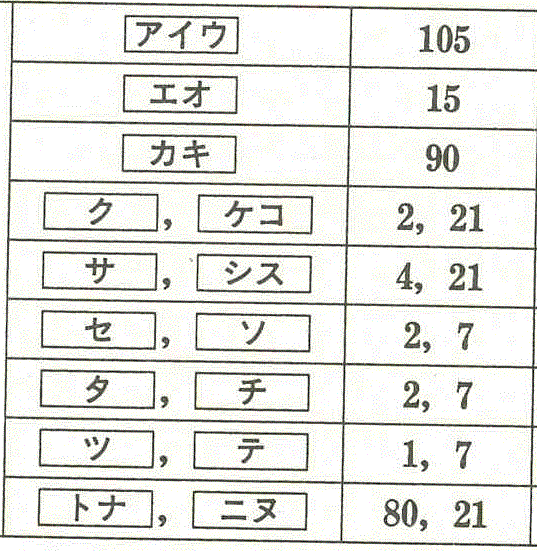 アイウ 105
エオ 15
カキ 90
ク, ケコ 2, 21
サ, シス 4, 21
セ, ソ 2, 7
タ, チ 2, 7
ツ, テ 1, 7
トナ, ニヌ 80, 21